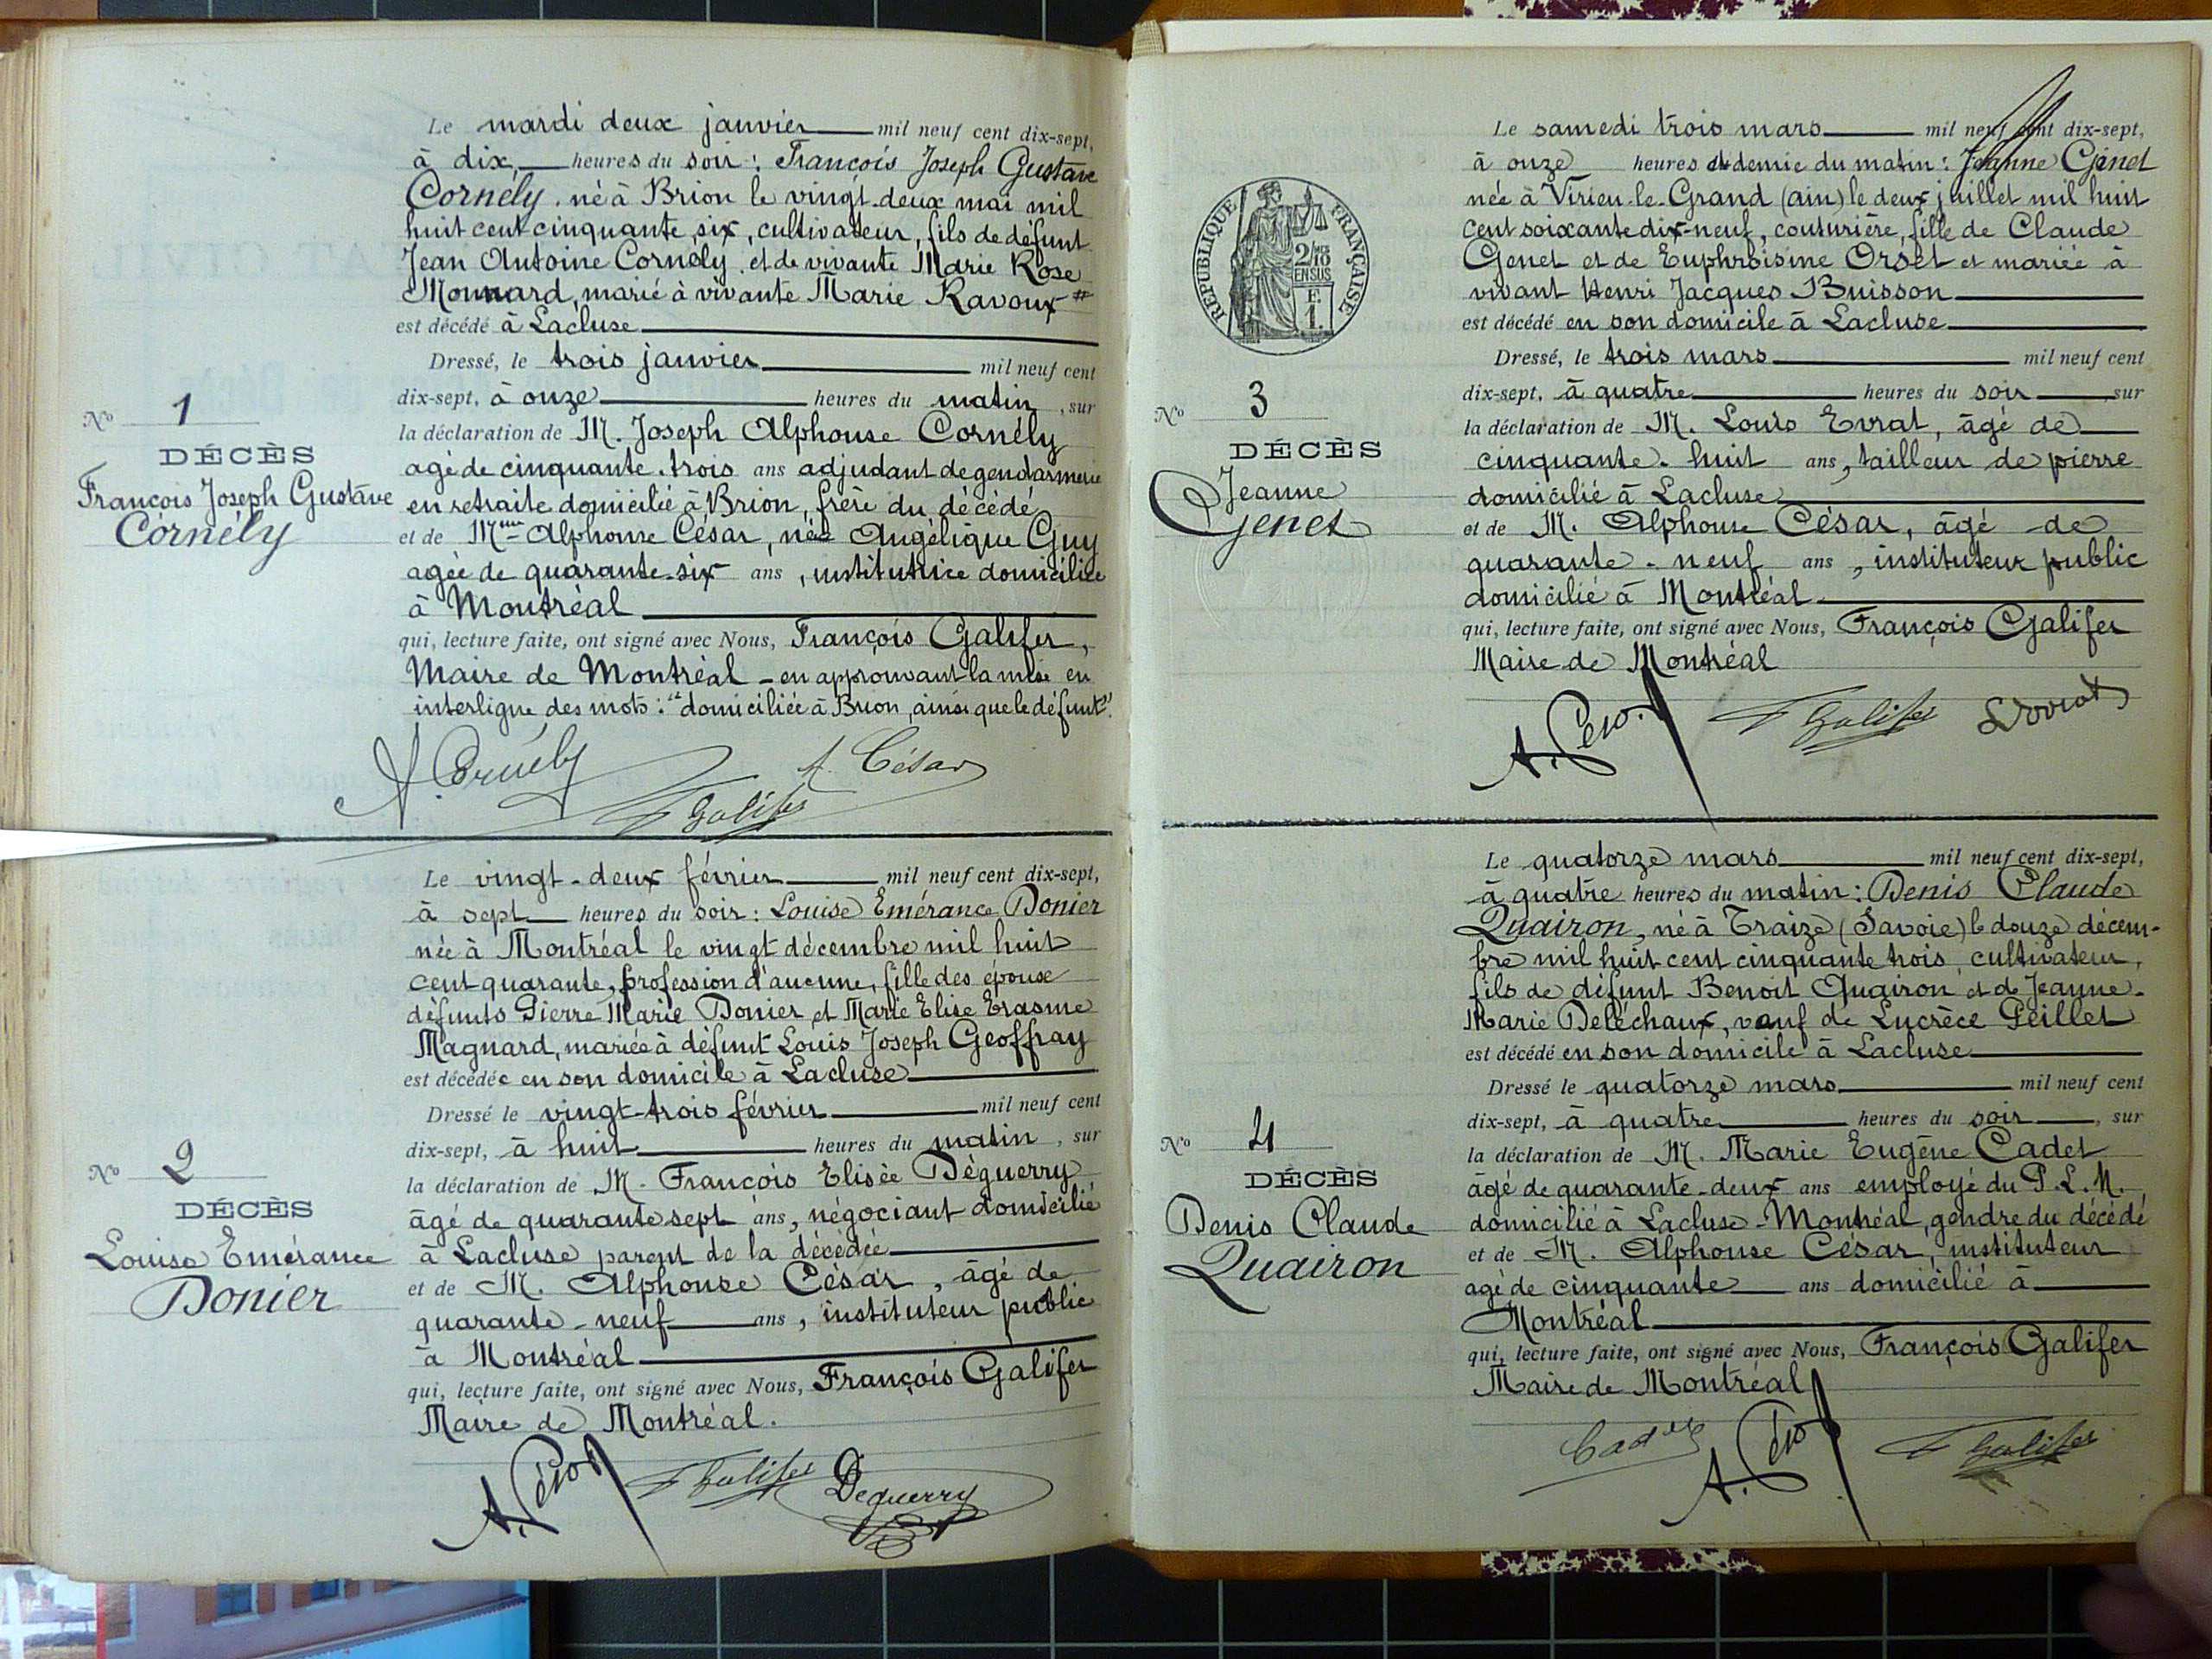 Le mardi deux janvier mil neuf cent dix-sept,
à dix, heures du soir : François Joseph Gustave
Cornély, né à Brion le vingt-deux mai mil
huit cent cinquante six, cultivateur, fils de défunt
Jean Antoine Cornély et de vivante Marie Rose
Monnard, marié à vivante Marie Ravoux #
est décédé à Lacluse
Dressé, le trois janvier mil neuf cent
dix-sept, à onze heures du matin, sur
la déclaration de M. Joseph Alphonse Cornély
agé de cinquante-trois ans adjudant de gendarmerie
en retraite domicilié à Brion, frère du décédé
et de Mme Alphonse César, née Angélique Guy
agée de quarante-six ans, institutrice domiciliée
à Montréal
qui, lecture faite, ont signé avec Nous, François Galifer,
Maire de Montréal - en approuvant la mise en
interligne des mots : "domiciliée à Brion, ainsi que le défunt".
A. Cornély
A. César
F Galifer
No 1
DÉCÈS
François Joseph Gustave
Cornély
Le vingt-deux février mil neuf cent dix-sept,
à sept heures du soir : Louise Emérance Donier
née à Montréal le vingt décembre mil huit
cent quarante, profession d'aucune, fille des épouse
défunts Pierre Marie Donier et Marie Elise Erasme
Magnard, mariée à défunt Louis Joseph Geoffray
est décédée en son domicile à Lacluse
Dressé le vingt-trois février mil neuf cent
dix-sept, à huit heures du matin, sur
la déclaration de M. François Elisée Déguerry
âgé de quarante sept ans, négociant domicilié
à Lacluse parent de la décédée
et de M. Alphonse César, âgé de
quarante-neuf ans, instituteur public
à Montréal
qui, lecture faite, ont signé avec Nous, François Galifer
Maire de Montréal.
A. César
F Galifer
Deguerry
No 2
DÉCÈS
Louise Emérance
Donier
RÉPUBLIQUE FRANÇAISE
2/10
EN SUS
F.
1.
Le samedi trois mars mil neuf cent dix-sept,
à onze heures et demie du matin : Jeanne Genet
née à Virieu-le-Grand (ain) le deux juillet mil huit
cent soixante dix-neuf, couturière, fille de Claude
Genet et de Euphroisine Orset et mariée à
vivant Henri Jacques Buisson
est décédé en son domicile à Lacluse
Dressé, le trois mars mil neuf cent
dix-sept, à quatre heures du soir, sur
la déclaration de M. Louis Evrat, âgé de
cinquante-huit ans, tailleur de pierre
domicilié à Lacluse
et de M. Alphonse César, âgé de
quarante-neuf ans, instituteur public
domicilié à Montréal.
qui, lecture faite, ont signé avec Nous, François Galifer
Maire de Montréal
A. César
F Galifer
No 3
DÉCÈS
Jeanne
Genet
Le quatorze mars mil neuf cent dix-sept,
à quatre heures du matin : Denis Claude
Quairon, né à Traize (Savoie) le douze décem-
bre mil huit cent cinquante trois, cultivateur,
fils de défunt Benoit Quairon et de Jeanne-
Marie Deléchaux, veuf de Lucrèce Peillet
est décédé en son domicile à Lacluse
Dressé le quatorze mars mil neuf cent
dix-sept, à quatre heures du soir, sur
la déclaration de M. Marie Eugène Cadet
âgé de quarante-deux ans employé du P.L.M.
domicilié à Lacluse-Montréal, gendre du décédé
et de M. Alphonse César, instituteur
agé de cinquante ans domicilié à
Montréal
qui, lecture faite, ont signé avec Nous, François Galifer
Maire de Montréal
Cadet
A. César
F Galifer
No 4
DÉCÈS
Denis Claude
Quairon